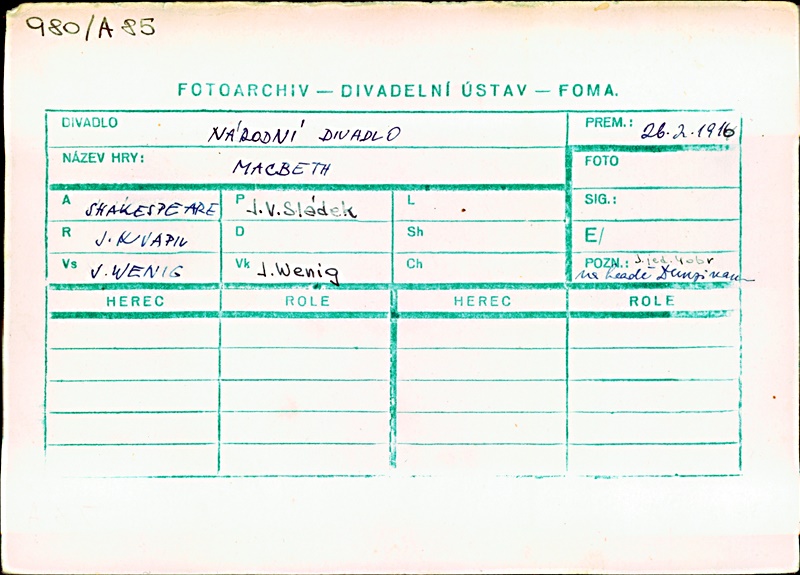 980/A 85
FOTOARCHIV — DIVADELNÍ ÚSTAV — FOMA.
DIVADLO NÁRODNÍ DIVADLO PREM.: 26.2.1916
NÁZEV HRY: MACBETH FOTO
A SHAKESPEARE P J.V.Sládek L SIG.:
R J. KVAPIL D Sh E/
Vs J. WENIG Vk J.Wenig Ch POZN.: 5.jed. 4 obr
na hradě Dunsinane
HEREC ROLE HEREC ROLE